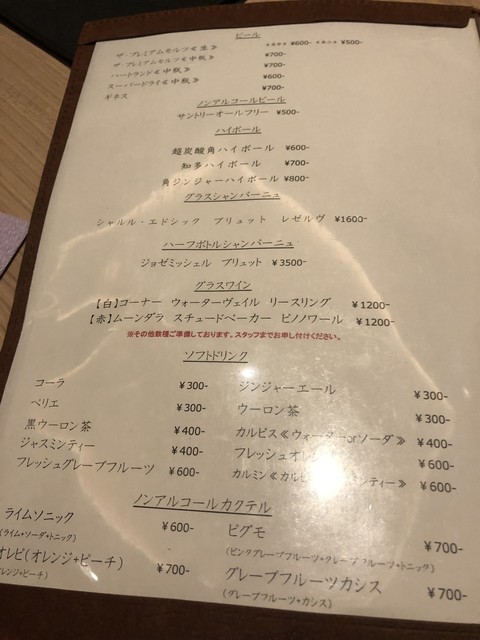 ビール
ザ・プレミアムモルツ≪生≫ ¥600- ¥500-
ザ・プレミアムモルツ≪中瓶≫ ¥700-
ハートランド≪中瓶≫ ¥700-
スーパードライ≪中瓶≫ ¥600-
ギネス ¥700-
ノンアルコールビール
サントリーオールフリー ¥500-
ハイボール
超炭酸角ハイボール ¥600-
知多ハイボール ¥700-
角ジンジャーハイボール ¥800-
グラスシャンパーニュ
シャルル・エドシック ブリュット レゼルヴ ¥1600-
ハーフボトルシャンパーニュ
ジョゼミッシェル ブリュット ¥3500-
グラスワイン
【白】コーナー ウォーターヴェイル リースリング ¥1200-
【赤】ムーンダラ スチュードベーカー ピノノワール ¥1200-
※その他数種ご準備しております。スタッフまでお申し付けください。
ソフトドリンク
コーラ ¥300-
ペリエ ¥300-
黒ウーロン茶 ¥400-
ジャスミンティー ¥400-
フレッシュグレープフルーツ ¥600-
ジンジャーエール ¥300-
ウーロン茶 ¥300-
カルピス≪ウォーターorソーダ≫ ¥400-
フレッシュオレ ¥600-
カルミン≪カルピ ンティー≫ ¥600-
ノンアルコールカクテル
ライムソニック ¥600-
(ライム+ソーダ+トニック)
オレピ(オレンジ+ピーチ) ¥700-
レンジ+ピーチ)
ピグモ ¥700-
(ピンクグレープフルーツ+グレープフルーツ+トニック)
グレープフルーツカシス ¥700-
(グレープフルーツ+カシス)